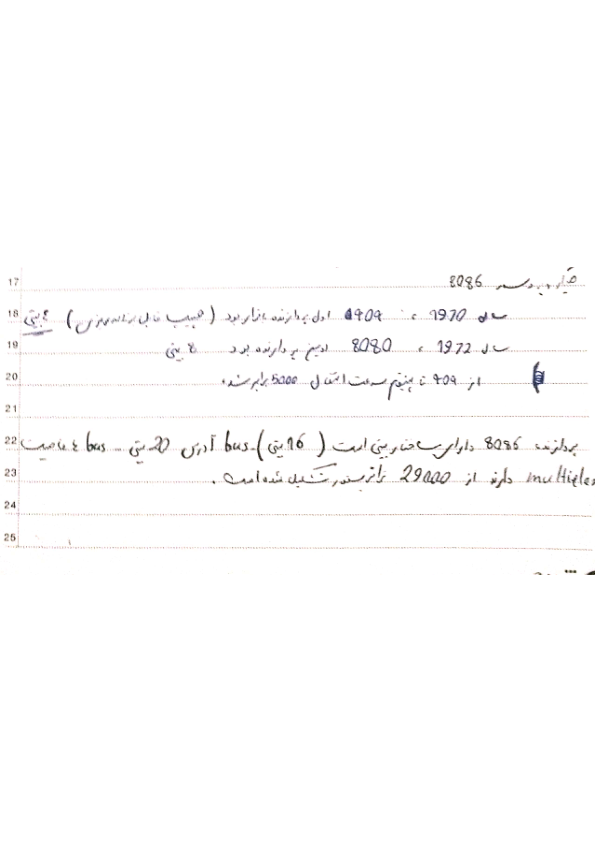 8086
سال 1970 : 4909 اول پردازنده بازار بود ( ) 4 بیتی
سال 1972 : 8080 دومین پردازنده بود 8 بیتی
از 409 تا پنتیوم سرعت انتقال 5000 برابر شده
پردازنده 8086 دارای ساختار بیتی است (16 بیتی) - bus آدرس 20 بیتی - bus ها خاصیت
multiplex دارند از 29000 ترانزیستور تشکیل شده است.
17
18
19
20
21
22
23
24
25